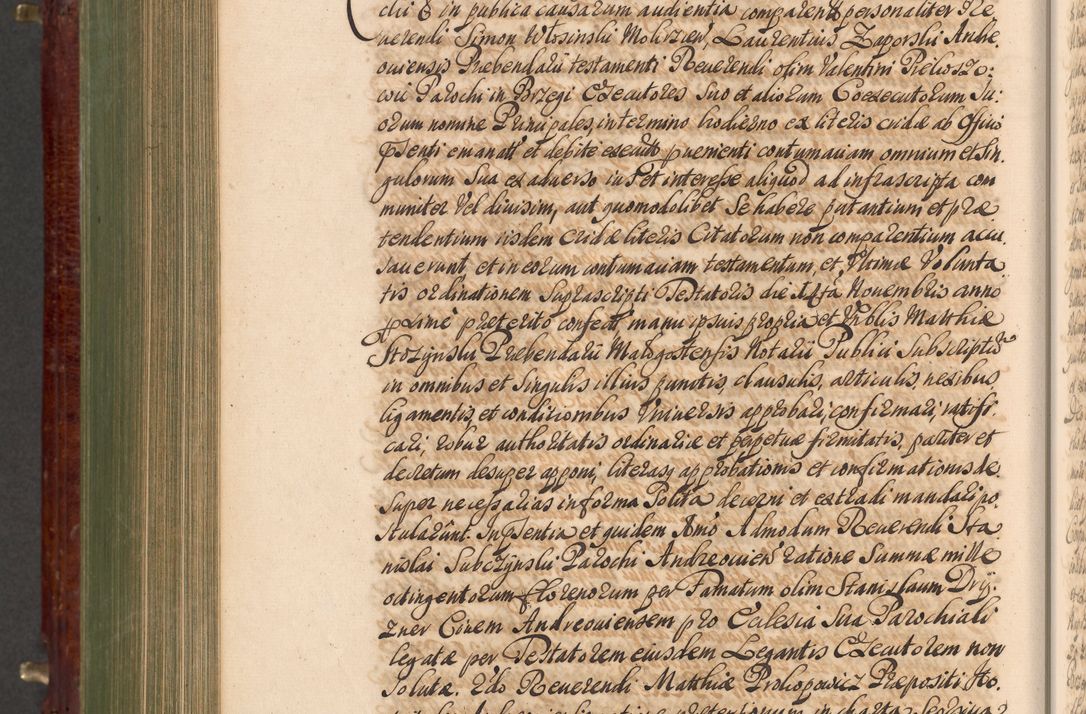 clii & in publica causarum audientia comparen personaliter Re
uerendi Simon Włosinski Molirzien, Laurentius Zaporski Andre
ouiensis Præbendarii testamenti Reuerendi olim Valentini Pielusze:
wic Parochi in Brzegi Executores suo et aliorum Coexecutorum Su:
orum nomine Principales, in termino hodierno ex literis cridæ ab Officio
psenti emanatt et debite executo puenienti contumaciam omnium et Sin
gulorum Sua ex aduerso ius et interesse aliquod ad infrascripta com
muniter Vel diuisim, aut quomodolibet Se habere putantium et præ
tendentium iisdem cridæ literis Citatorum non comparentium accu
sauerunt, et in eorum contumaciam testamentum, et Vltimæ Volunta
tis ordinationem Suprascripti Testatoris die 14ta Nouembris anno
pxime præterito confect manu ipsius propria et Vrblis Matthiæ
Stozynski Præbendarii Małogostensis Notarii Publici Subscriptũ
in omnibus et Singulis illius punctis, clausulis, articulis, nexibus,
ligamentis, et conditiombus Vniuersis approbari, confirmari, ratifi
cari, robur authoritatis ordinariæ et perpetuæ firmitatis, pariter et
decretum desuper apponi, literasq approbationis et confirmationis de
Super necessarias in forma Solita decerni et extradi mandari po
stularunt. In psentia et quidem Imo Admodum Reuerendi Sta
nislai Subczynski Parochi Andreouien ratione Summæ mille
octingentorum florenorum per Famatum olim Stanislaum Dry
zner Ciuem Andreouiensem pro Ecclesia Sua Parochiali
legatæ per Testatorem eiusdem Legantis Executorem non
Solutæ. 2do Reuerendi Matthiæ Prokopowicz Præpositi Ho.